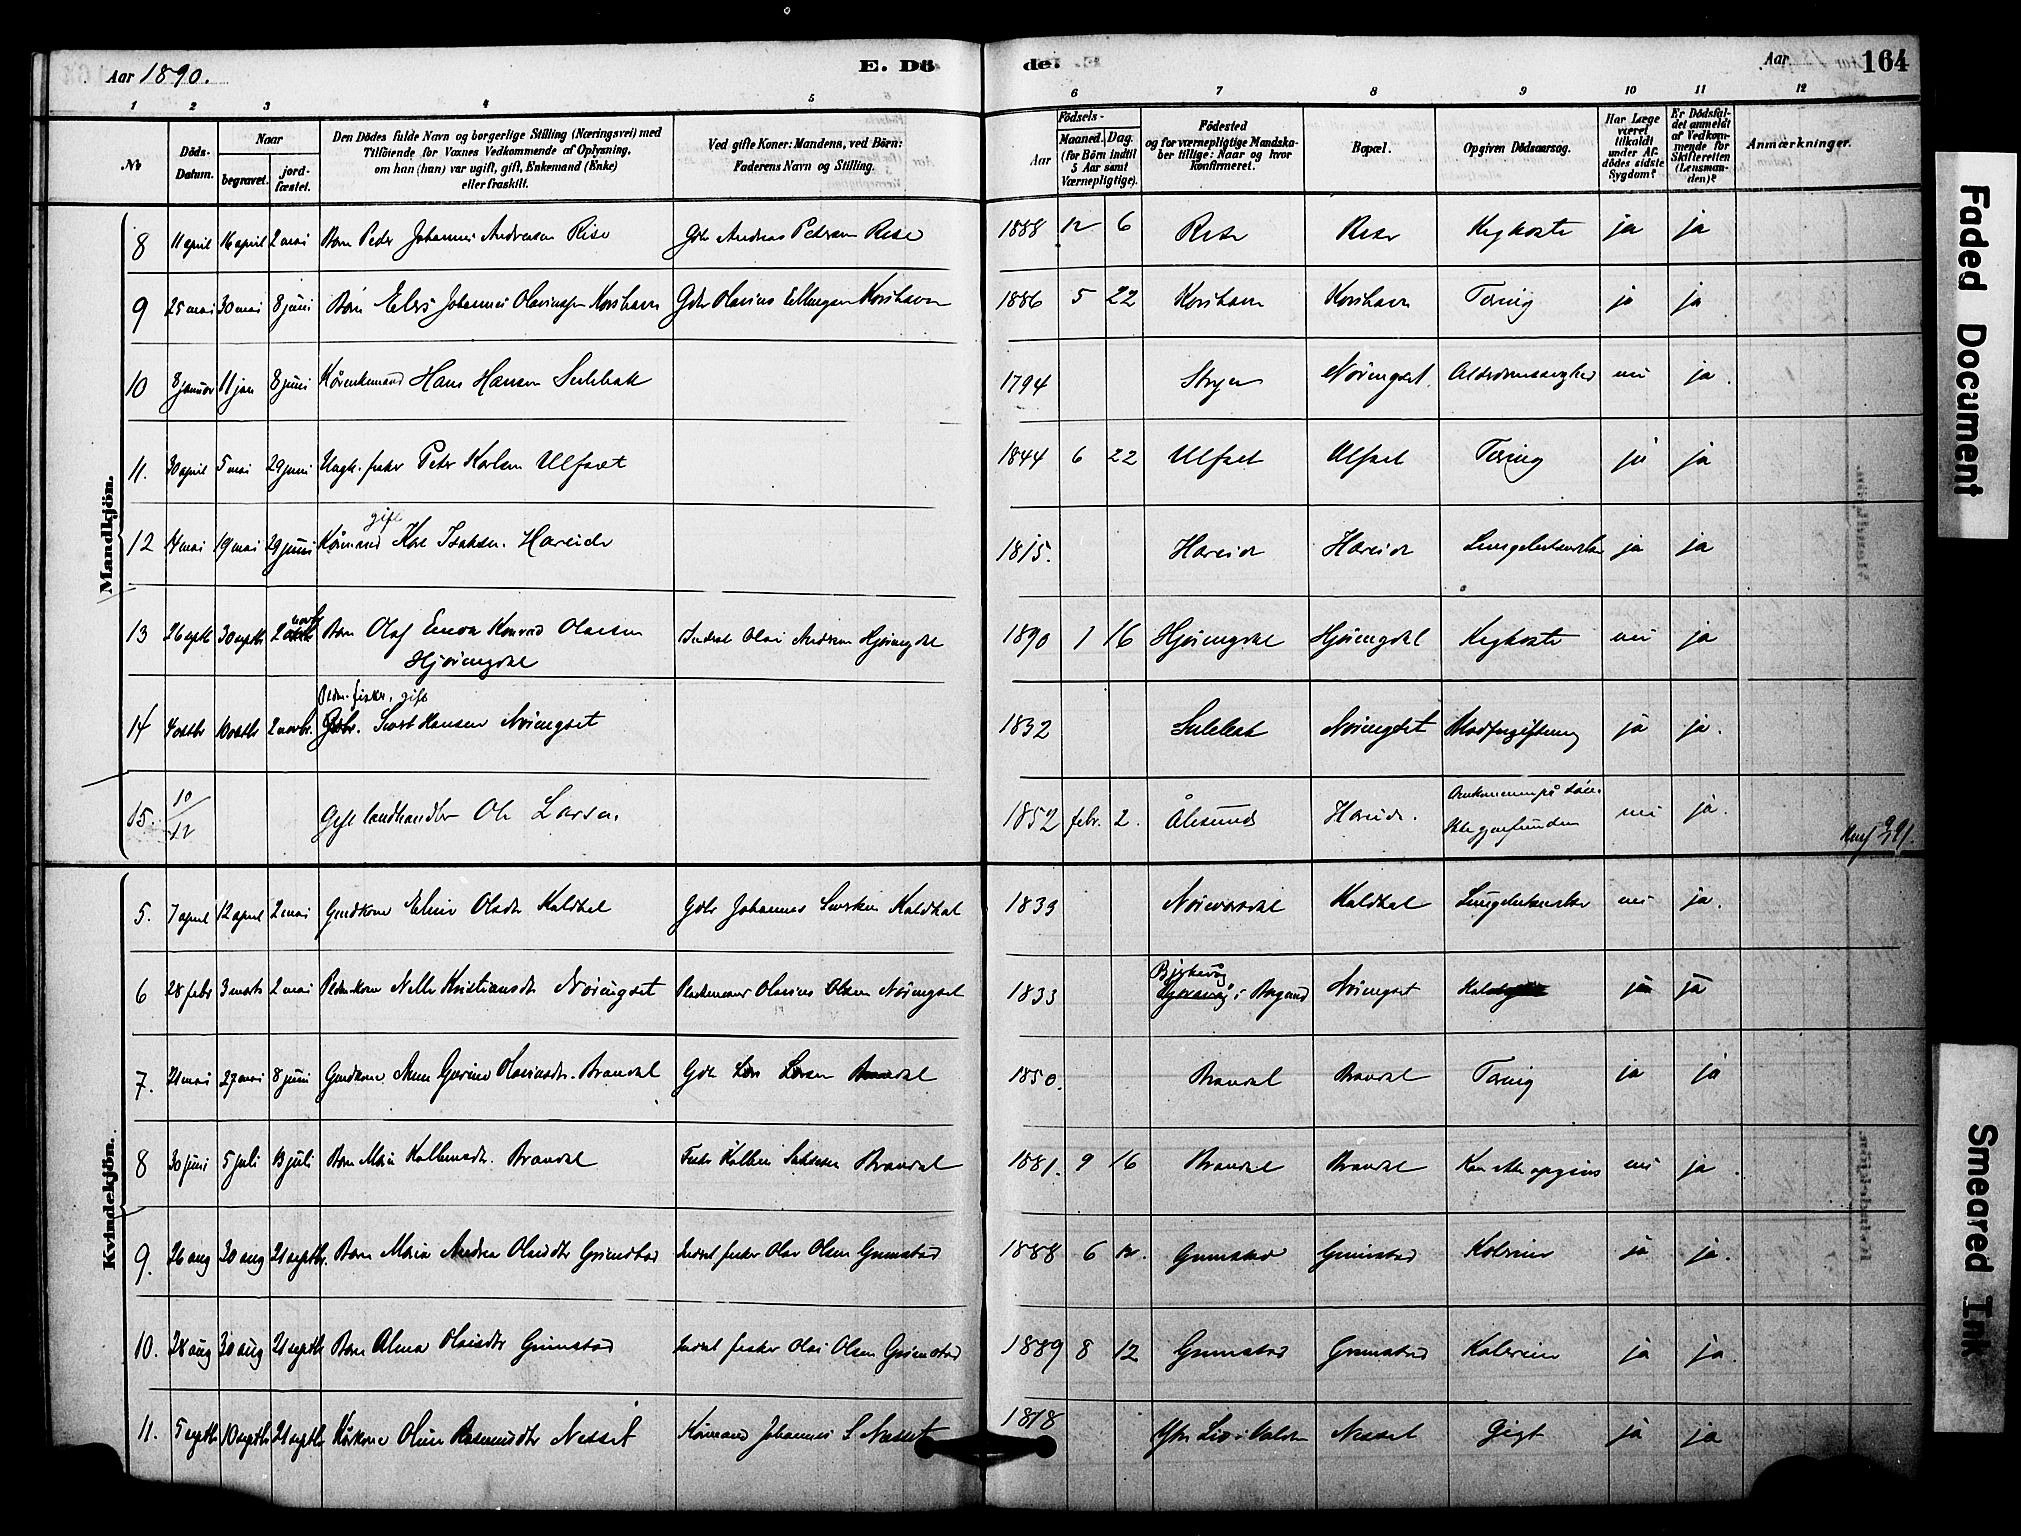 Aar 1890.
E. Döde.
Aar
164
1 2 3 4 5 6 7 8 9 10 11 12
No
Döds-Datum.
Naar
begravet.
jordfæstet.
Den Dödes fulde Navn og borgerlige Stilling (Næringsvei) med
Tilföiende for Voxnes Vedkommende af Oplysning,
om han (hun) var ugift, gift, Enkemand (Enke)
eller fraskilt.
Ved gifte Koner: Mandens, ved Börn:
Faderens Navn og Stilling.
Födsels-
Aar
Maaned. Dag.
(for Börn indtil
5 Aar samt
Værnepligtige).
Födested
og for værnepligtige Mandskaber tillige: Naar og hvor
Konfirmeret.
Bopæl.
Opgiven Dödsaarsag.
Har Læge
været
tilkaldt
under Afdödes sidste
Sygdom?
Er Dödsfaldet anmeldt
af Vedkommende for
Skifteretten
(Lensmanden)?
Anmærkninger.
Mandkjön.
8 11 april 16 april 2 mai Barn Peder Johannes Andreasen Rise Gbr Andreas Pedersen Rise 1888 12 6 Rise Rise Kighoste ja ja
9 25 mai 30 mai 8 juni Barn Johannes Olavinusen Korshavn Gbr Olavius Ellingsen Korshavn 1886 5 22 Korshavn Korshavn Tæring ja ja
10 8 januar 11 jan 8 juni Kårenkemand Hans Hansen 1794 Stryn Nöringset Alderdomssvaghed nei ja.
11. 30 april 5 mai 29 juni Ungk. fisker Peter Karlsen Ulfset 1844 6 22 Ulfset Ulfset Tæring ja ja
gift
12 14 mai 19 mai 29 juni Kårmand Isaksen Hareide 1815. Hareid Hareid Lungebetændelse ja ja
13 26 septb 30 septb 2 novb Barn Olaf Konrad Olaisen Inderst Olai Andersen Hjörungdal 1890 1 16 Hjörungdal Hjörungdal Kighoste nei ja
Hjörungdal
fisker. gift
14 4 octbr 10 octbr 2 novbr. Sivert Hansen Nöringset 1832 Nöringset Blodforgiftning ja ja.
15. 10/12 Gift landhandler Ole Larsen. 1852 febr. 2. Ålesund Hareide. Omkommen på söen. nei ja.
Ikke gjenfunden
Kvindekjön.
5. 7 april 12 april 2 mai Gaardkone Oline Olsdtr Kaldhol Gbr Johannes Kaldhol 1833 Kaldhol Lungebetændelse nei ja.
6 28 febr 3 marts 2 mai Kristiansdtr Nöringset Olavius Olsen Nöringset 1833 i Borgund Nöringset ja ja
7. 21 mai 27 mai 8 juni Gaardkone Anne Olavusdtr. Brandal Gbr Lars Larsen Brandal 1850. Brandal Brandal Tæring ja ja
8 30 juni 5 juli 13 juli Barn Brandal Brandal 1881. 9 16 Brandal Brandal Kan ikke opgives nei ja
9. 26 aug 30 aug 21 septbr. Barn Maria Andrea Olaisdtr Grimstad Inderst fisker Olai Olsen Grimstad 1888 6 12. Grimstad Grimstad Kolerine ja ja.
10. 28 aug 30 aug 21 septb Barn Alma Olaisdtr Grimstad Inderst fisker Olai Olsen Grimstad 1889 8 12 Grimstad Grimstad Kolerine ja ja
11. 5 septb 10 septb 21 septb Kårkone Oline Rasmusdtr Nesset Kårmand Johannes S. Nesset 1818 Nesset Gigt ja ja
Faded Document
Smeared Ink